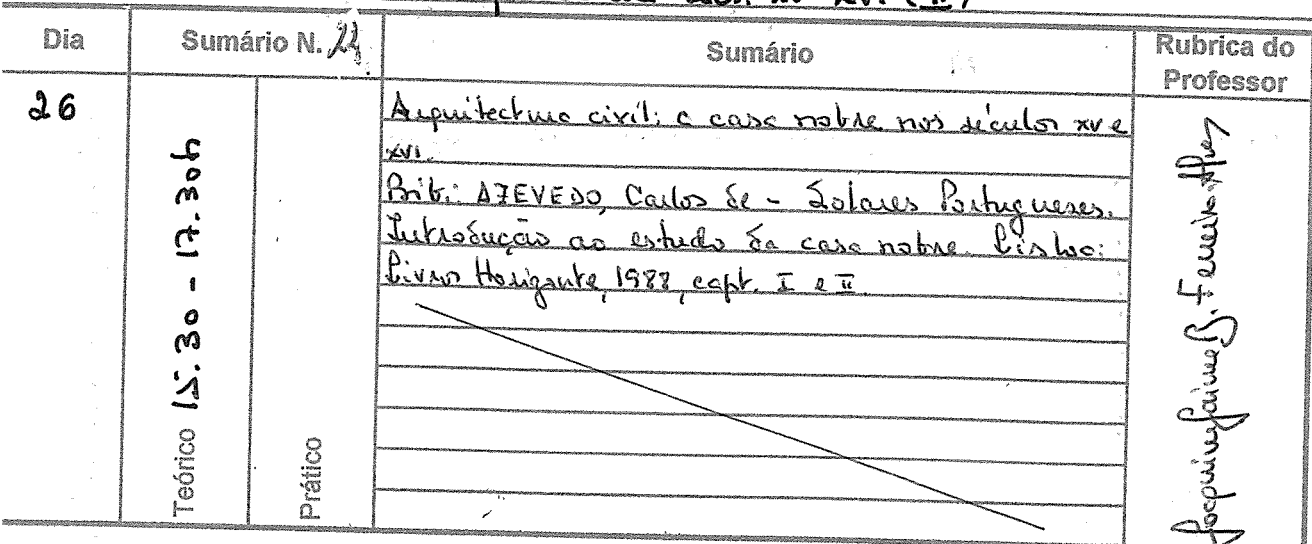 Dia
Sumário N.
Sumário
Rubrica do
Professor
26
Teórico 15.30 - 17.30h
Prático
Arquitectura civil: a casa nobre nos séculos XV e
XVI.
Bib.: AZEVEDO, Carlos de - Solares Portugueses.
Introdução ao estudo da casa nobre. Lisboa:
Livros Horizonte, 1988, capt. I e II
Joaquim Jaime B. Ferreira-Alves